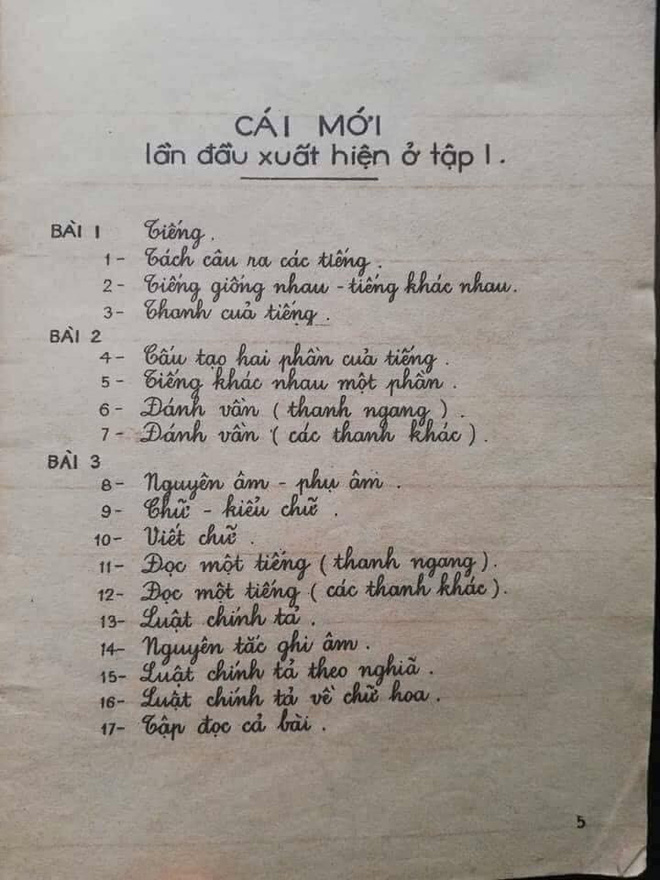 CÁI MỚI
lần đầu xuất hiện ở tập 1.
BÀI 1 Tiếng.
1- Tách câu ra các tiếng.
2- Tiếng giống nhau - tiếng khác nhau.
3- Thanh của tiếng.
BÀI 2
4- Cấu tạo hai phần của tiếng.
5- Tiếng khác nhau một phần.
6- Đánh vần (thanh ngang).
7- Đánh vần (các thanh khác).
BÀI 3
8- Nguyên âm - phụ âm.
9- Chữ - kiểu chữ.
10- Viết chữ.
11- Đọc một tiếng (thanh ngang).
12- Đọc một tiếng (các thanh khác).
13- Luật chính tả.
14- Nguyên tắc ghi âm.
15- Luật chính tả theo nghĩa.
16- Luật chính tả về chữ hoa.
17- Tập đọc cả bài.
5